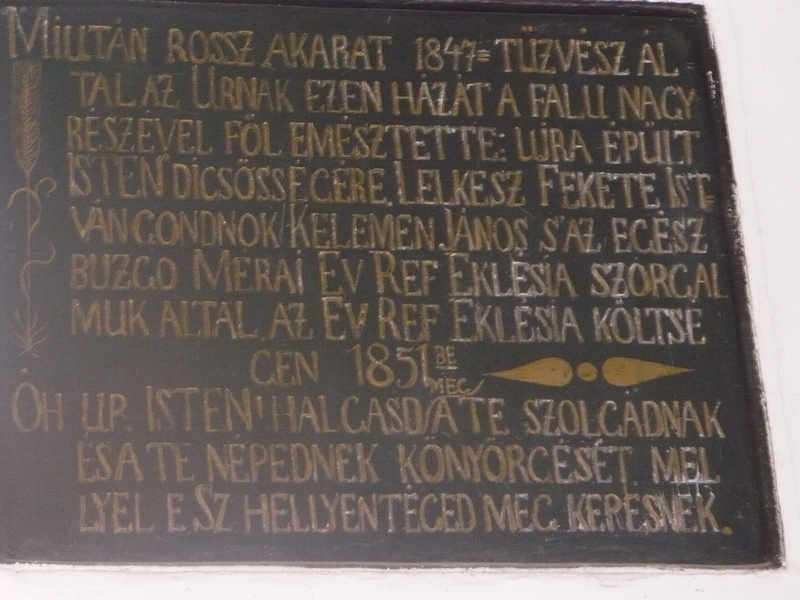 MIUTÁN ROSSZ AKARAT 1847= TŰZVÉSZ ÁL
TAL AZ ÚRNAK EZEN HÁZÁT A FALU NAGY
RÉSZÉVEL FÖL EMÉSZTETTE: UJRA ÉPÜLT
ISTEN DICSŐSSEGÉRE. LELKESZ FEKETE IST=
VÁN GONDNOK KELEMEN JÁNOS S'AZ EGÉSZ
BUZGO MERAI EV REF EKLÉSIA SZORGAL
MUK ALTAL. AZ EV REF EKLÉSIA KÖLTSÉ
GEN 1851 BE
MEG
ÓH UR ISTEN! HALGASD A TE SZOLGÁDNAK
ÉS A TE NÉPEDNEK KÖNYÖRGÉSÉT. MEL
LYEL E SZ HELLYENTÉGED MEG KERESNEK.